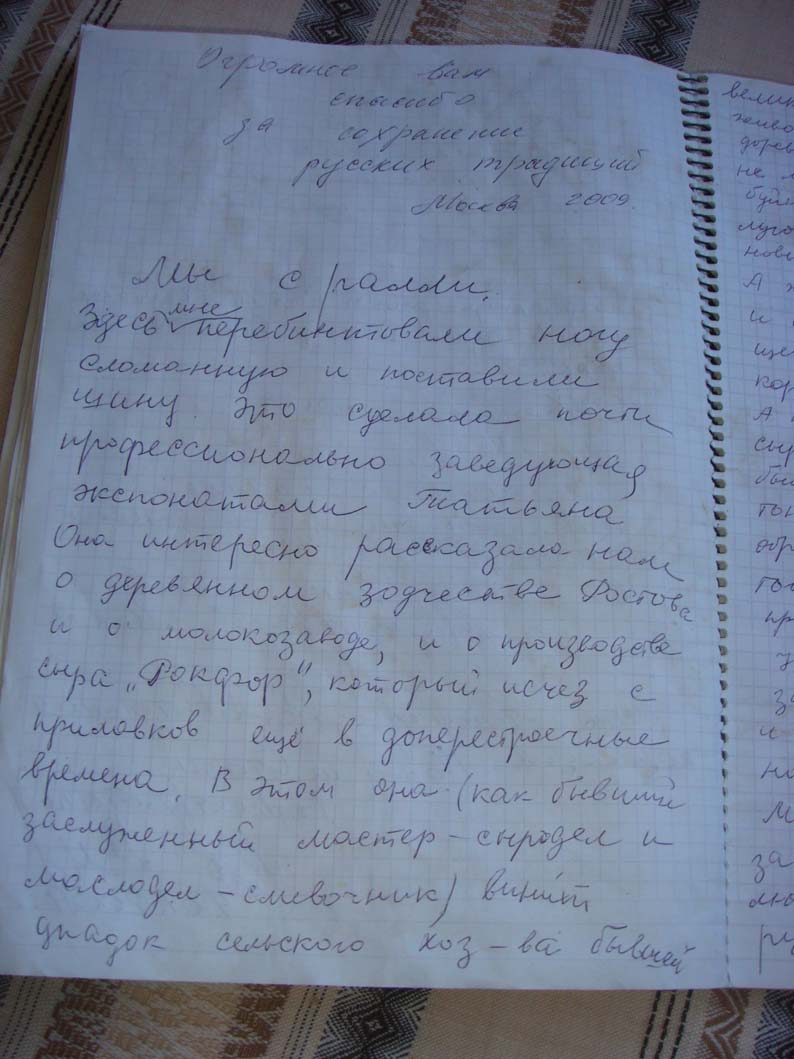 Огромное вам
спасибо
за сохранение
русских традиций
Москва 2009.
Мы с ралли.
Здесь мне перебинтовали ногу
сломанную и поставили
шину. Это сделала почти
профессионально заведующая
экспонатами Татьяна
Она интересно рассказала нам
о деревянном зодчестве Ростова
и о молокозаводе, и о производстве
сыра „Рокфор", который исчез с
прилавков ещё в доперестроечные
времена. В этом она (как бывший
заслуженный мастер-сыродел и
маслодел-сливочник) винит
упадок сельского хоз-ва бывшей
вели
живо
дерев
не
А
и
ще
кор
А
сыр
бы
тон
обр
то
пр
за
и
но
за